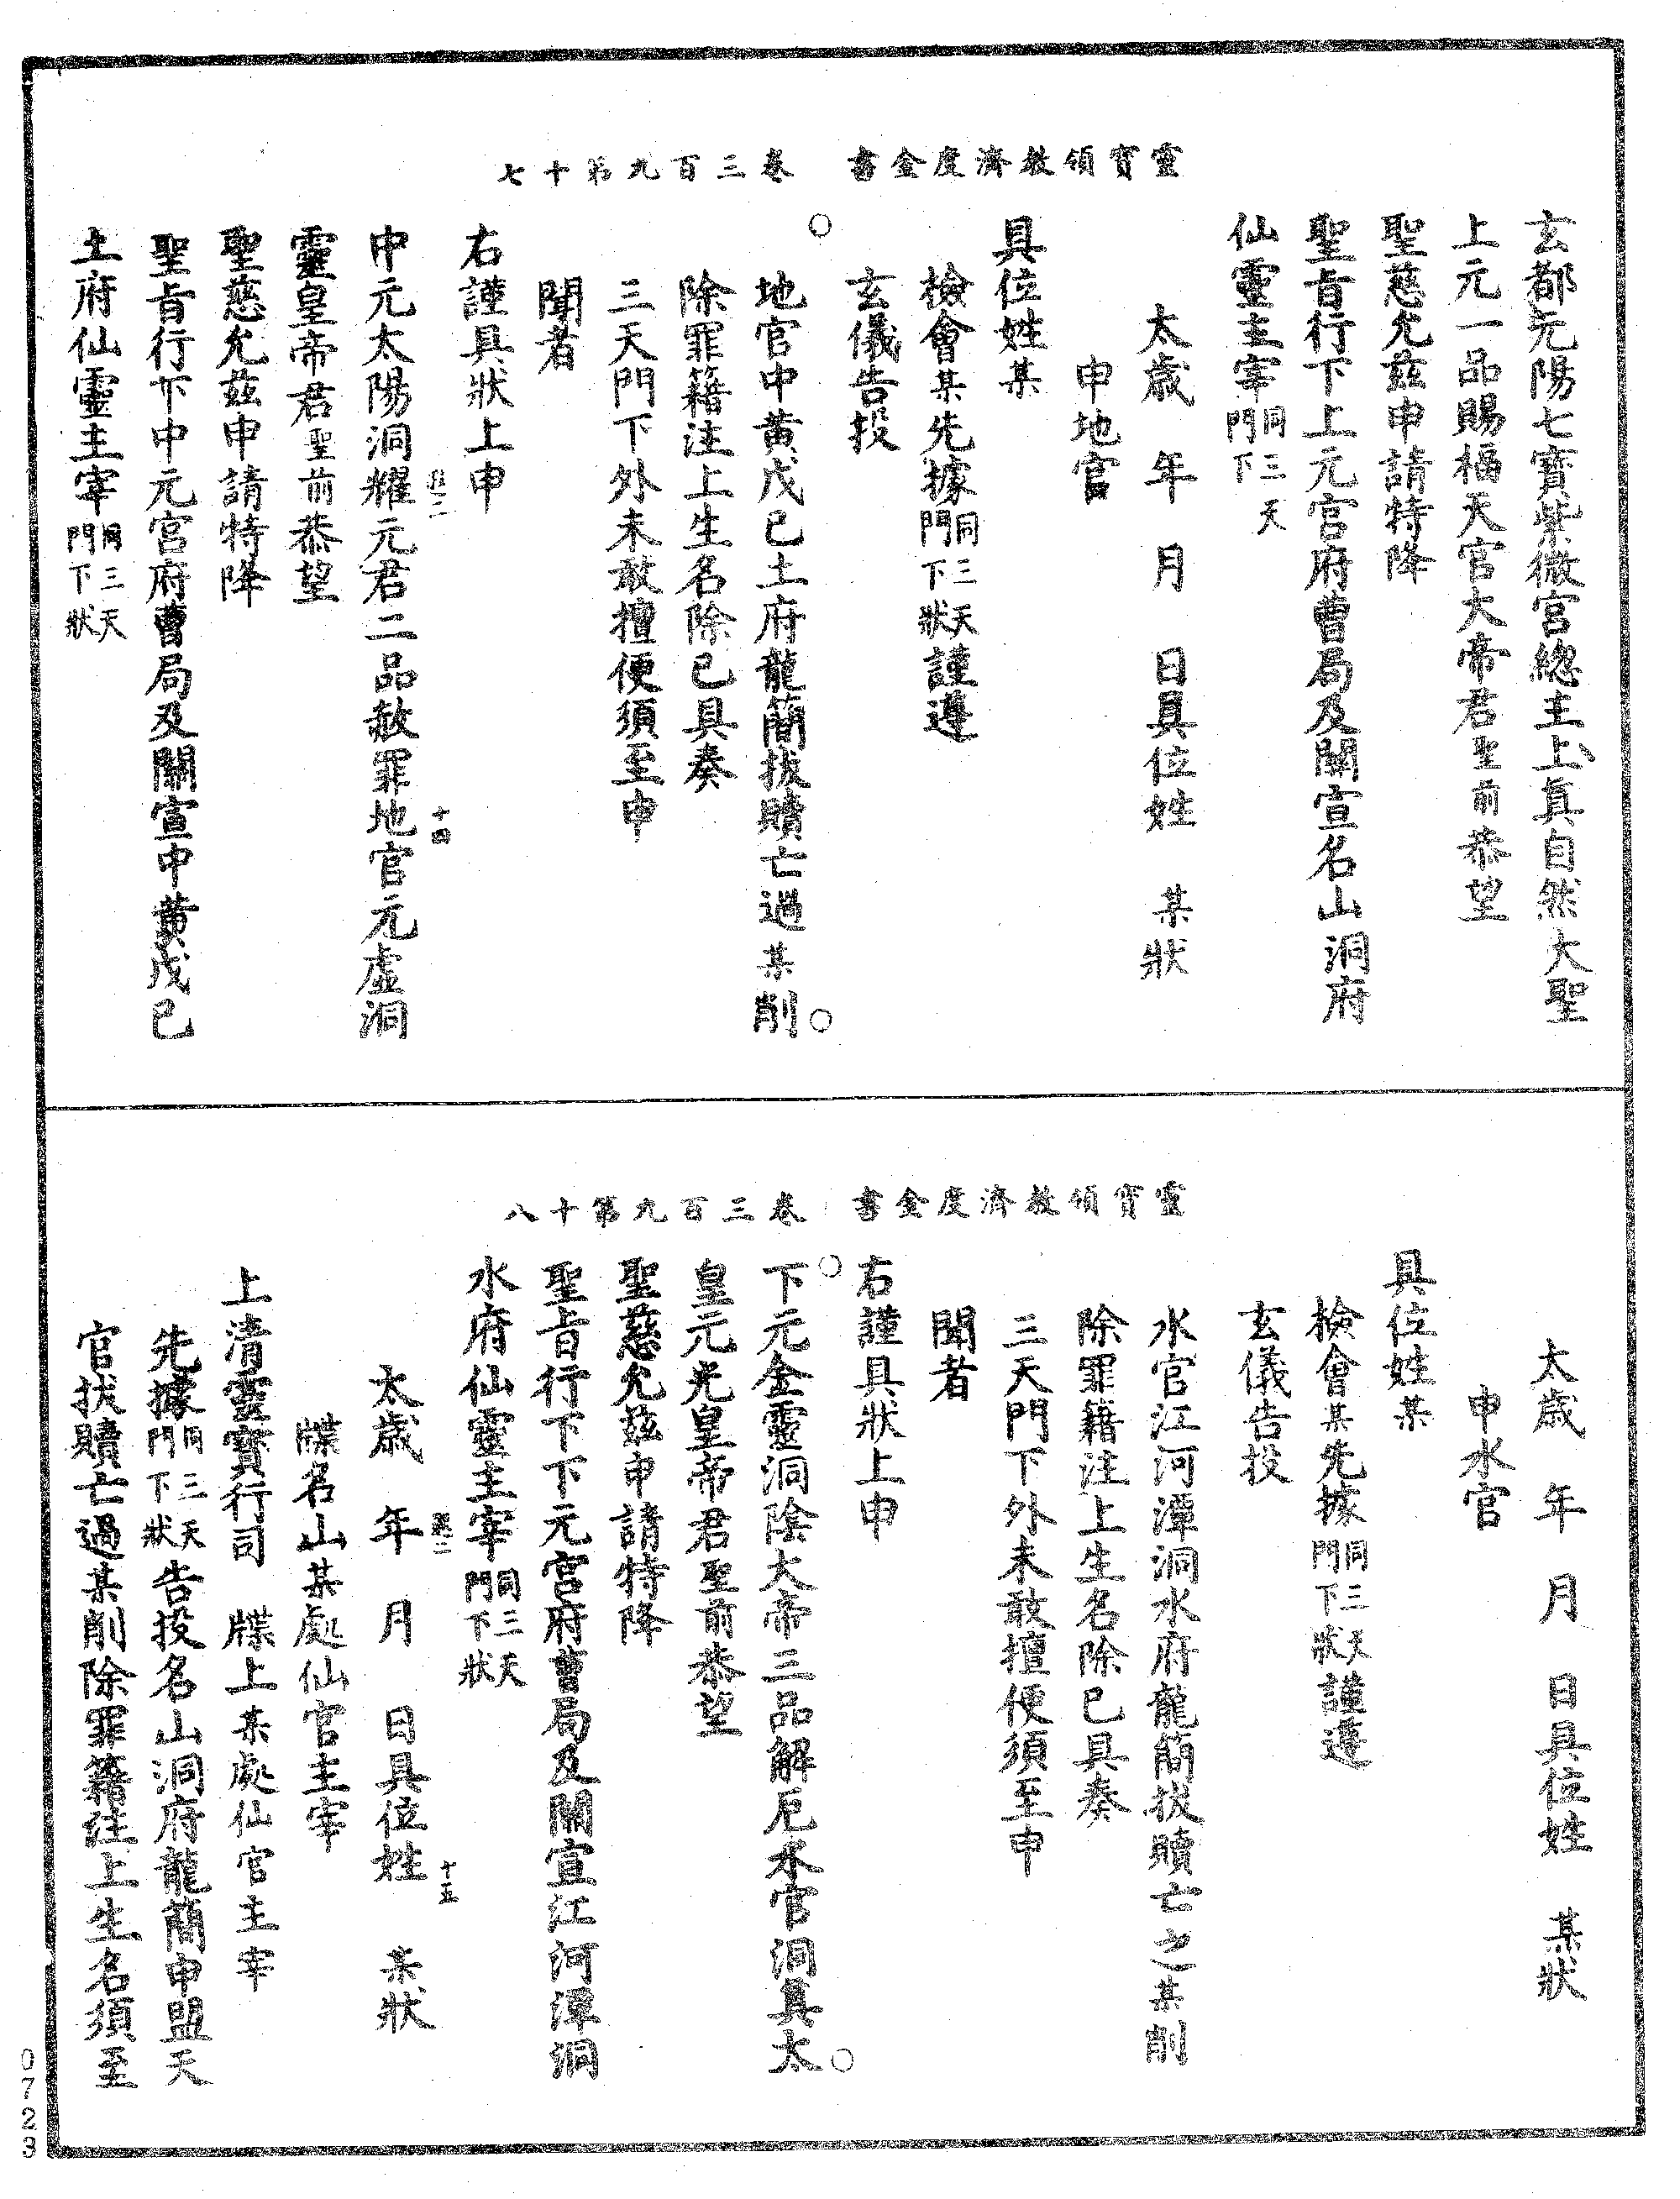 靈寶領教濟度金書　卷三百九第十七
玄都元陽七寶紫微宮總主上真自然大聖
上元一品賜福天官大帝君聖前恭望
聖慈允茲申請特降
聖旨行下上元宮府曹局及關宣名山洞府
仙靈主宰同三天門下
太歲　年　月　日具位姓　某狀
申地官
具位姓某
檢會某先據同三天門下狀謹遵
玄儀告投
地官中黃戊己土府龍簡拔贖亡過某削
除罪籍注上生名除已具奏
三天門下外未敢擅便須至申
聞者
右謹具狀上申
十四
中元太陽洞耀元君二品赦罪地官元虛洞
靈皇帝君聖前恭望
聖慈允茲申請特降
聖旨行下中元宮府曹局及關宣中黃戊己
土府仙靈主宰同三天門下狀
靈寶領教濟度金書　卷三百九第十八
太歲　年　月　日具位姓　某狀
申水官
具位姓某
檢會某先據同三天門下狀謹遵
玄儀告投
水官江河潭洞水府龍簡拔贖亡之某削
除罪籍注上生名除已具奏
三天門下外未敢擅便須至申
聞者
右謹具狀上申
下元金靈洞陰大帝三品解厄水官洞真太
皇元光皇帝君聖前恭望
聖慈允茲申請特降
聖旨行下下元宮府曹局及關宣江河潭洞
水府仙靈主宰同三天門下狀
十五
太歲　年　月　日具位姓　某狀
牒名山某處仙官主宰
上清靈寶行司　牒上某處仙官主宰
先據同三天門下狀告投名山洞府龍簡申盟天
官拔贖亡過某削除罪籍注上生名須至
0723